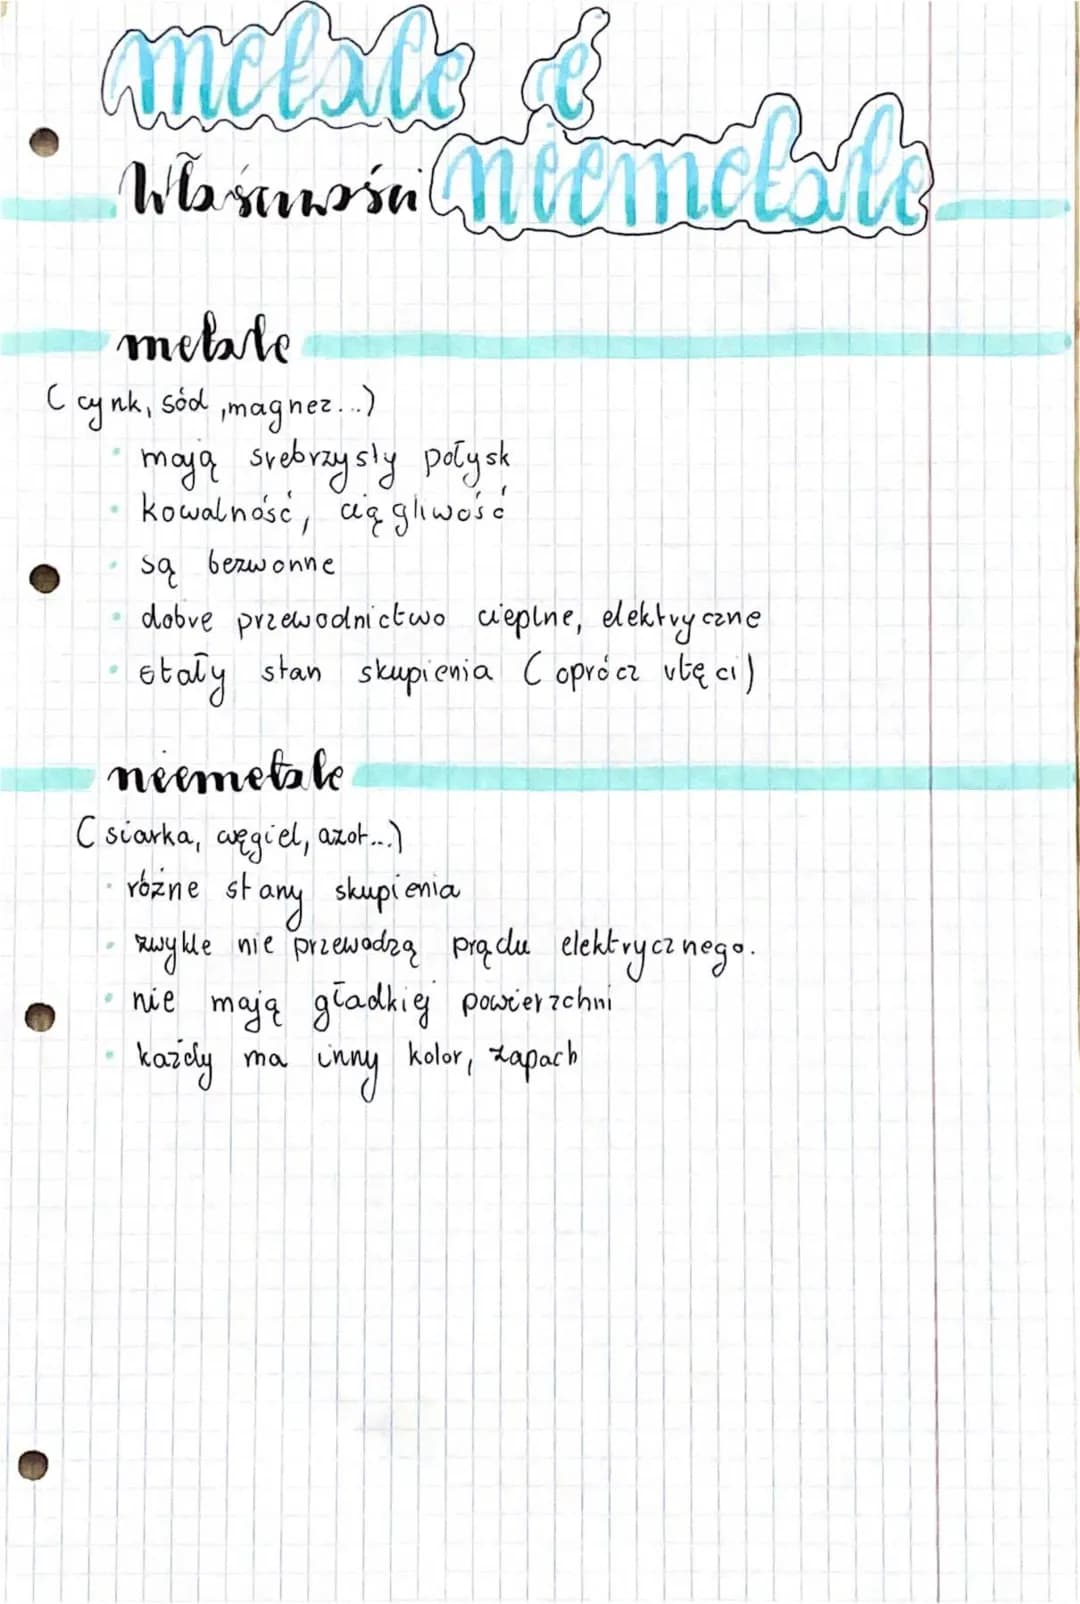 metale i
niemetale
Właściwości
metale
(cynk, sód, magnez...)
mają srebrzysty połysk
kowalność, ciągliwość
są bezwonne
dobre przewodnictwo cieplne, elektryczne
stały stan skupienia (oprócz rtęci)
niemetale
(siarka, węgiel, azot...)
różne stany skupienia
zwykle nie przewodzą prądu elektrycznego.
nie mają gładkiej powierzchni
każdy ma inny kolor, zapach